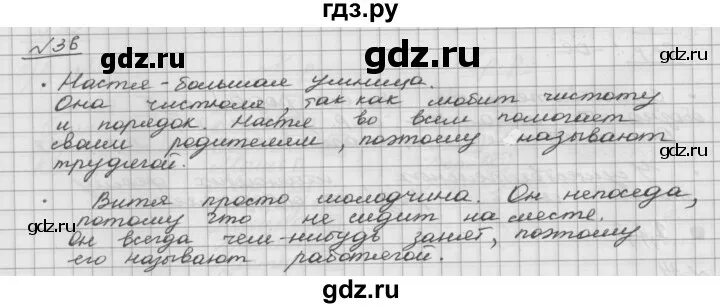 гдз.ру
№36
gdz.ru gdz.ru
• Настя - большая умница.
Она чистюля, так как любит чистоту
и порядок Настя во всём помогает
своим родителям, поэтому называют
трудягой.
gdz.ru gdz.ru
• Витя просто молодчина. Он непоседа,
потому что не сидит на месте.
Он всегда чем-нибудь занят, поэтому
его называют работягой.
gdz.ru gdz.ru